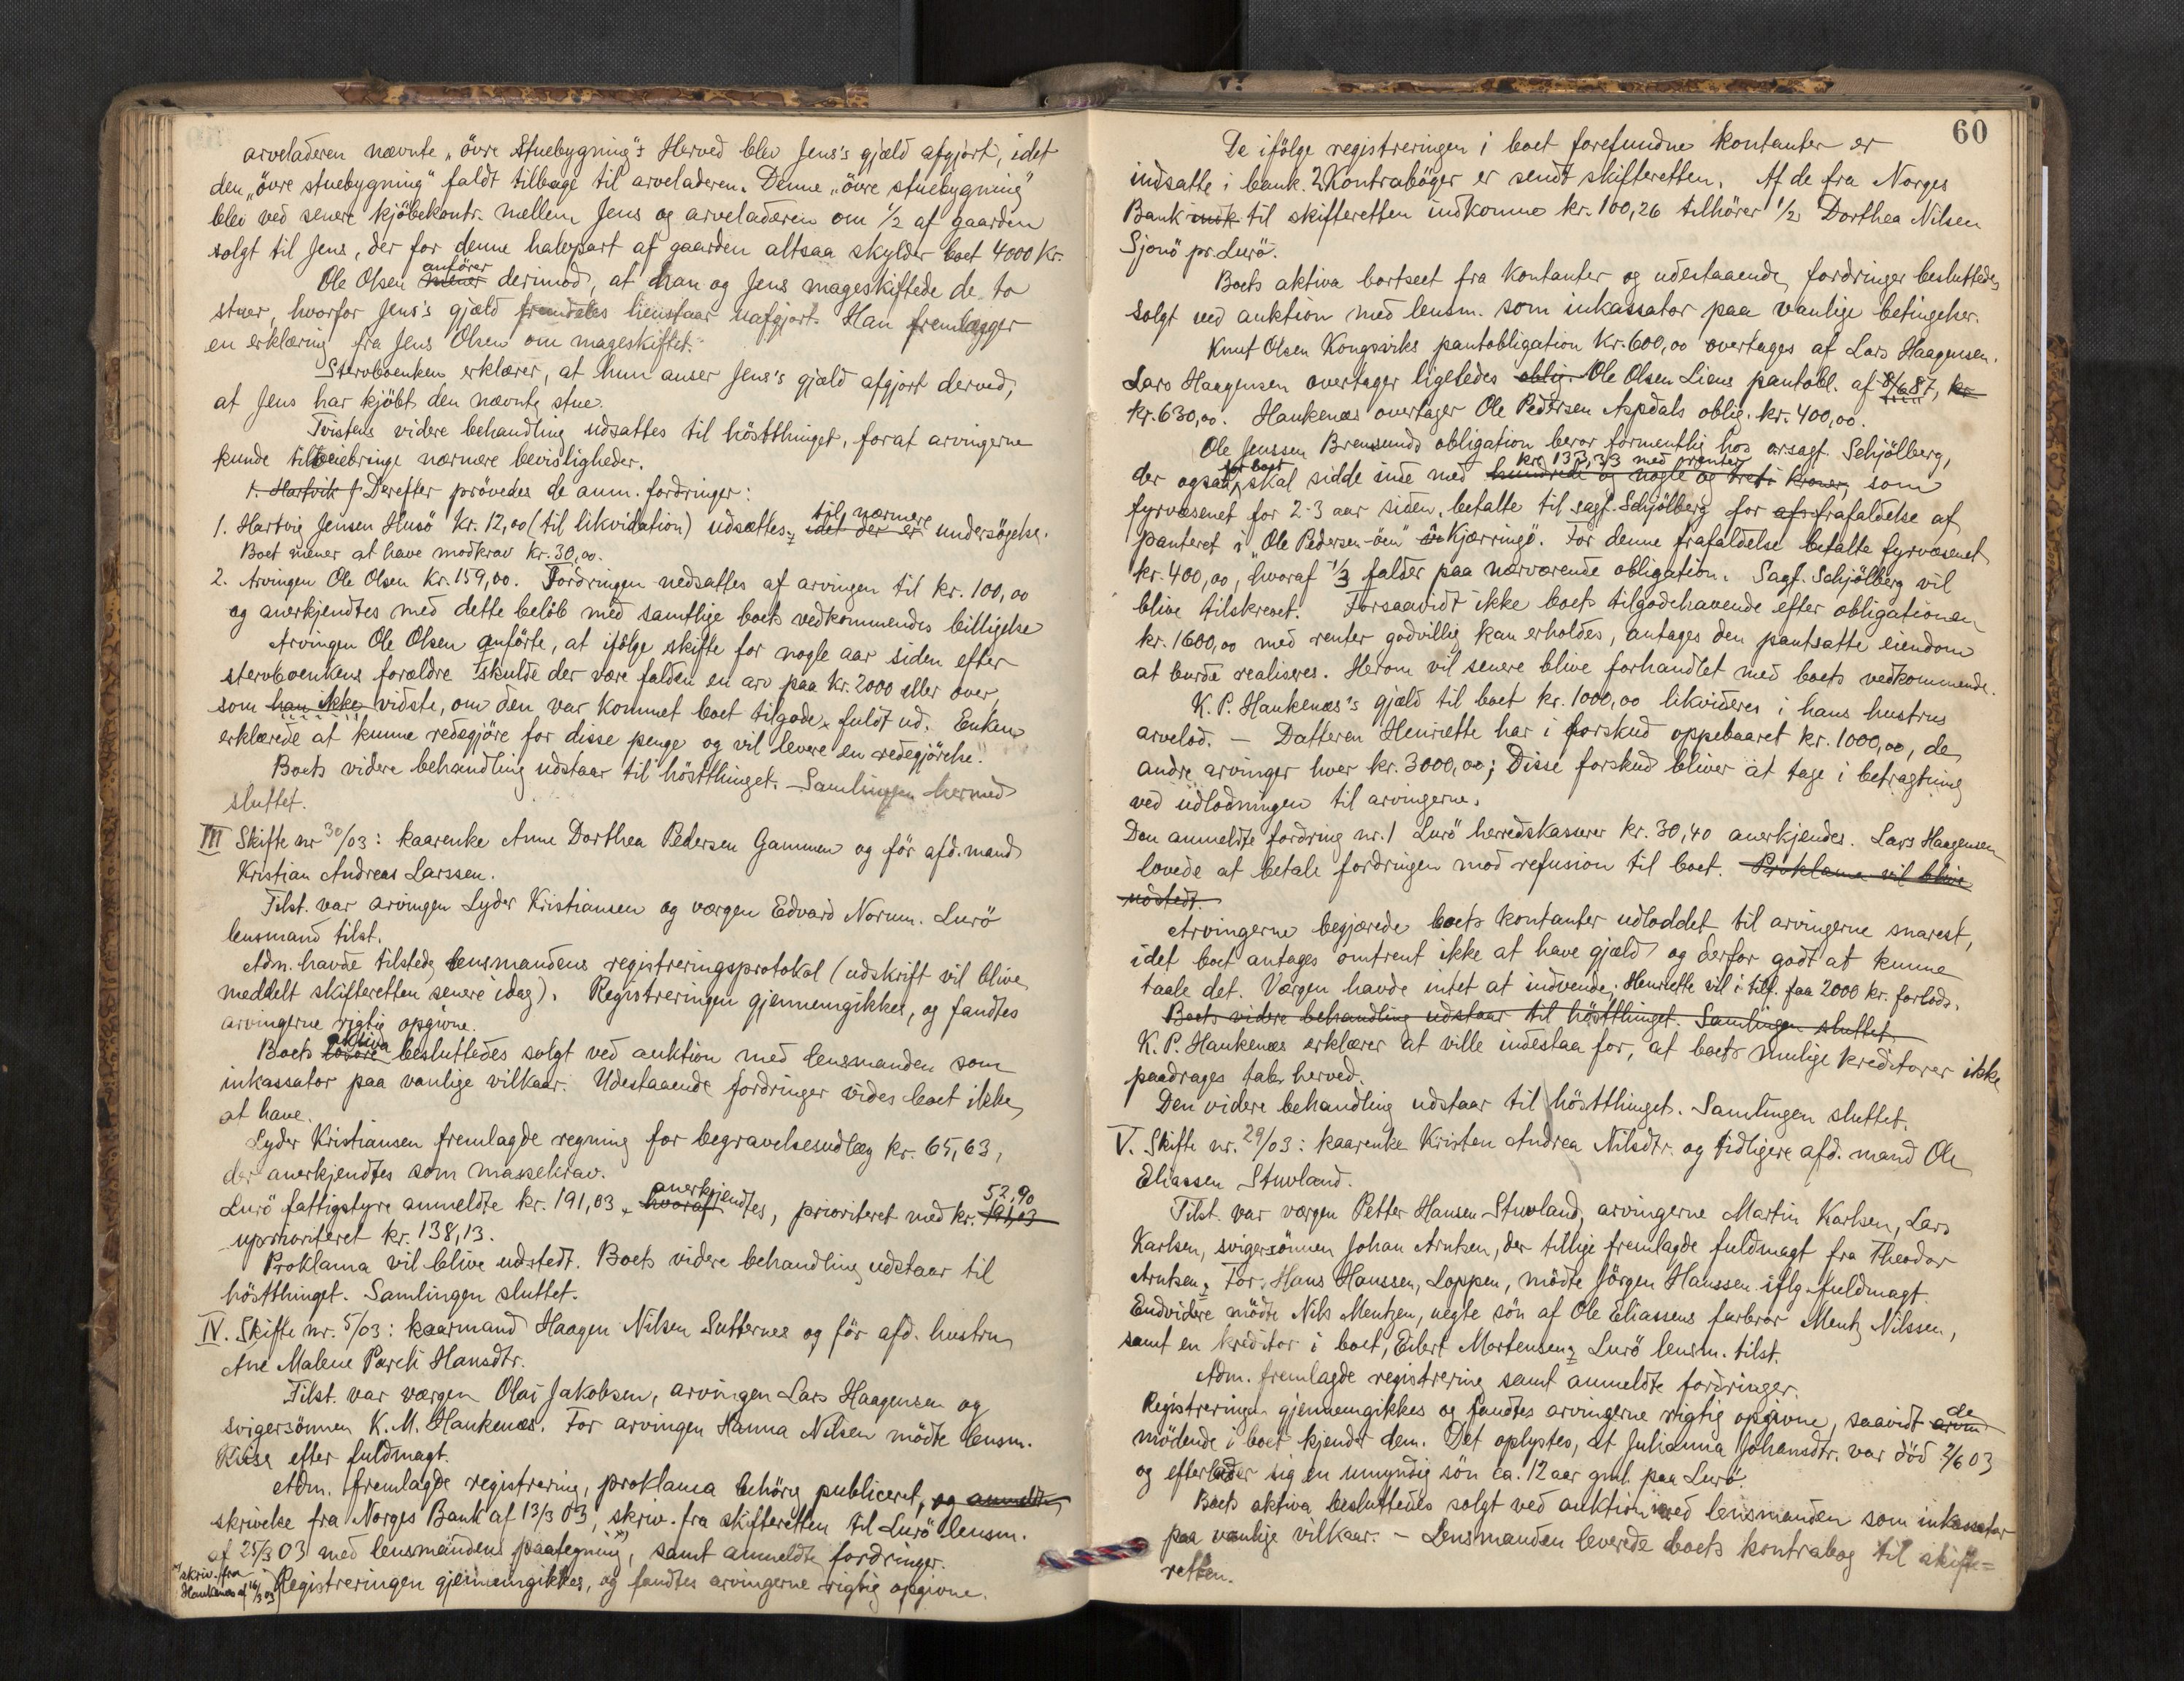 arveladeren nævnte „övre stuebygning": Herved blev Jens's gjæld afgjort, idet
den „övre stuebygning" faldt tilbage til arveladeren. Denne „övre stuebygning"
blev ved senere kjöbekontr. mellem Jens og arveladeren om 1/2 af gaarden
solgt til Jens, der for denne halvpart af gaarden altsaa skylder boet 4000 kr.
Ole Olsen mener anförer derimod, at han og Jens mageskiftede de to
stuer, hvorfor Jens's gjæld fremdeles henstaar uafgjort. Han fremlægger
en erklæring fra Jens Olsen om mageskiftet.
Stervboenken erklærer, at hun anser Jens's gjæld afgjort derved,
at Jens har kjöbt den nævnte stue.
Tvistens videre behandling udsattes til höstthinget, forat arvingerne
kunde tilveiebringe nærmere bevisligheder.
1. Hartvik J Derefter prövedes de anm. fordringer:
1. Hartvig Jensen Husö kr. 12,00 (til likvidation) udsættes idet der er til nærmere undersögelse.
Boet mener at have modkrav kr. 30,00.
2. Arvingen Ole Olsen kr. 159,00. Fordringen nedsattes af arvingen til kr. 100,00
og anerkjendtes med dette belöb med samtlige boets vedkommendes billigelse
Arvingen Ole Olsen anförte, at ifölge skifte for nogle aar siden efter
stervboenkens forældre skulde der være falden en arv paa kr. 2000 eller over,
som han ikke vidste, om den var kommet boet tilgode fuldt ud. Enken
erklærede at kunne redegjöre for disse penge og vil levere en redegjörelse.
Boets videre behandling udstaar til höstthinget. Samlingen hermed
sluttet.
III Skifte nr 30/03: kaarenke Anne Dorthea Pedersen Gammen og för afd. mand
Kristian Andreas Larssen.
Tilst. var arvingen Lyder Kristiansen og værgen Edvard Norum. Lurö
lensmand tilst.
Adm. havde tilstede lensmandens registreringsprotokol (udskrift vil blive
meddelt skifteretten senere idag). Registreringen gjennemgikkes, og fandtes
arvingerne rigtig opgivne.
Boets lösöre aktiva besluttedes solgt ved auktion med lensmanden som
inkassator paa vanlige vilkaar. Udestaaende fordringer vides boet ikke
at have.
Lyder Kristiansen fremlagde regning for begravelsesudlæg kr. 65,63,
der anerkjendtes som massekrav.
Lurö fattigstyre anmeldte kr. 191,03, hvoraf anerkjendtes, prioriteret med kr. 191,03 52,90
uprioriteret kr. 138,13.
Proklama vil blive udstedt. Boets videre behandling udstaar til
höstthinget. Samlingen sluttet.
IV. Skifte nr. 5/03: kaarmand Haagen Nilsen Sutternes og för afd. hustru
Ane Malene Pareli Hansdtr.
Tilst. var værgen Olai Jakobsen, arvingen Lars Haagensen og
svigersönnen K. M. Hankenæs. For arvingen Hanna Nilsen mödte lensm.
efter fuldmagt.
Adm. fremlagde registrering, proklama behörig publiceret, og anmeldte
skrivelse fra Norges Bank af 13/3 03, skriv. fra skifteretten til Lurö lensm.
af 25/3 03 med lensmandens paategning, x) samt anmeldte fordringer.
x) skriv. fra
Hankenæs af 16/3 03
Registreringen gjennemgikkes, og fandtes arvingerne rigtig opgivne.
60
De ifölge registreringen i boet forefundne kontanter er
indsatte i bank. 2 Kontraböger er sendt skifteretten. Af de fra Norges
Bank indk til skifteretten indkomne kr. 100,26 tilhörer 1/2 Dorthea Nilsen
Sjonö pr. Lurö.
Boets aktiva bortseet fra kontanter og udestaaende fordringer besluttedes
solgt ved auktion med lensm. som inkassator paa vanlige betingelser.
Knut Olsen Kongsviks pantobligation kr. 600,00 overtages af Lars Haagensen.
Lars Haagensen overtager ligeledes oblig. Ole Olsen Liens pantobl. af 8/6 87, kr
kr. 630,00. Hankenæs overtager Ole Pedersen Aspdals oblig. kr. 400,00.
Ole Jenssen Bremsunds obligation beror formentlig hos orsagf. Schjölberg,
der ogsaa for boet skal sidde inde med hundrede og nogle og treti kroner, kr. 133,33 med renter som
fyrvæsenet for 2-3 aar siden betalte til sagf. Schjölberg for afs frafaldelse af
panteret i „Ole Pedersen-öen" i Kjærringö. For denne frafaldelse betalte fyrvæsenet
kr. 400,00, hvoraf 1/3 falder paa nærværende obligation. Sagf. Schjölberg vil
blive tilskrevet. Forsaavidt ikke boets tilgodehavende efter obligationen
kr. 1600,00 med renter godvillig kan erholdes, antages den pantsatte eiendom
at burde realiseres. Herom vil senere blive forhandlet med boets vedkommende.
K. P. Hankenæs's gjæld til boet kr. 1000,00 likvideres i hans hustrus
arvelod. – Datteren Henriette har i forskud oppebaaret kr. 1000,00, de
andre arvinger hver kr. 3000,00; Disse forskud bliver at tage i betragtning
ved udlodningen til arvingerne.
Den anmeldte fordring nr. 1 Lurö herredskasserer kr. 30,40 anerkjendes. Lars Haagensen
lovede at betale fordringen mod refusion til boet. Proklama vil blive
udstedt.
Arvingerne begjærede boets kontanter udloddet til arvingerne snarest,
idet boet antages omtrent ikke at have gjæld og derfor godt at kunne
taale det. Værgen havde intet at indvende; Henriette vil i tilf. faa 2000 kr. forlods.
Boets videre behandling udstaar til höstthinget. Samlingen sluttet.
K. P. Hankenæs erklærer at ville indestaa for, at boets mulige kreditorer ikke
paadrages tab herved.
Den videre behandling udstaar til höstthinget. Samlingen sluttet.
V. Skifte nr. 29/03: kaarenke Kristen Andrea Nilsdtr. og tidligere afd. mand Ole
Eliassen Stuvland.
Tilst. var værgen Petter Hansen Stuvland, arvingerne Martin Karlsen, Lars
Karlsen, svigersönnen Johan Arntsen, der tillige fremlagde fuldmagt fra Theodor
Arntsen; For Hans Hanssen, Loppen, mödte Jörgen Hanssen iflg. fuldmagt.
Endvidere mödte Nils Mentzen, uegte sön af Ole Eliassens farbror Mentz Nilssen,
samt en kreditor i boet, Eilert Mortensen; Lurö lensm. tilst.
Adm. fremlagde registrering samt anmeldte fordringer.
Registreringen gjennemgikkes og fandtes arvingerne rigtig opgivne, saavidt arvin de
mödende i boet kjendte dem. Det oplystes, at Julianna Johansdtr. var död 2/6 03
og efterlader sig en umyndig sön ca. 12 aar gml. paa Lurö.
Boets aktiva besluttedes solgt ved auktion med lensmanden som inkassator
paa vanlige vilkaar. – Lensmanden leverede boets kontrabog til skifte=
retten.